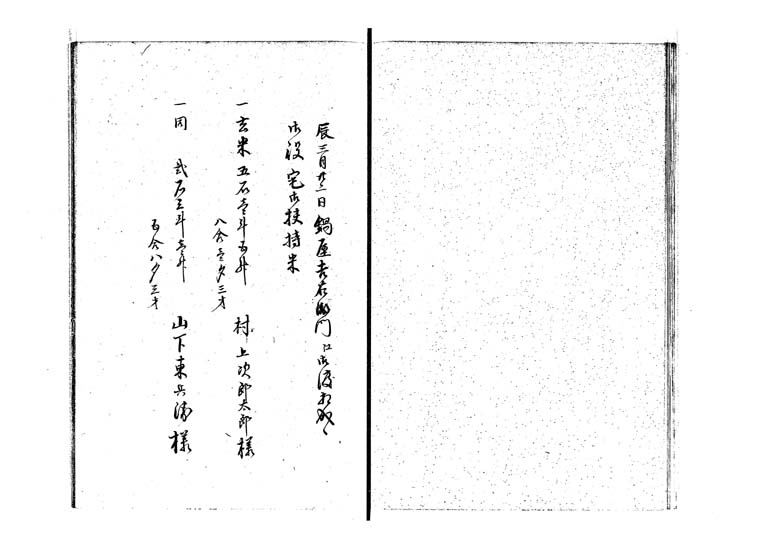 辰三月廿一日鍋屋吉右衛門江御渡相成候
御役宅御扶持米
一玄米 五石壱斗五升 村上次郎太郎様
八合壱夕三才
一同 弐石三斗壱升 山下東兵衛様
五合八夕三才